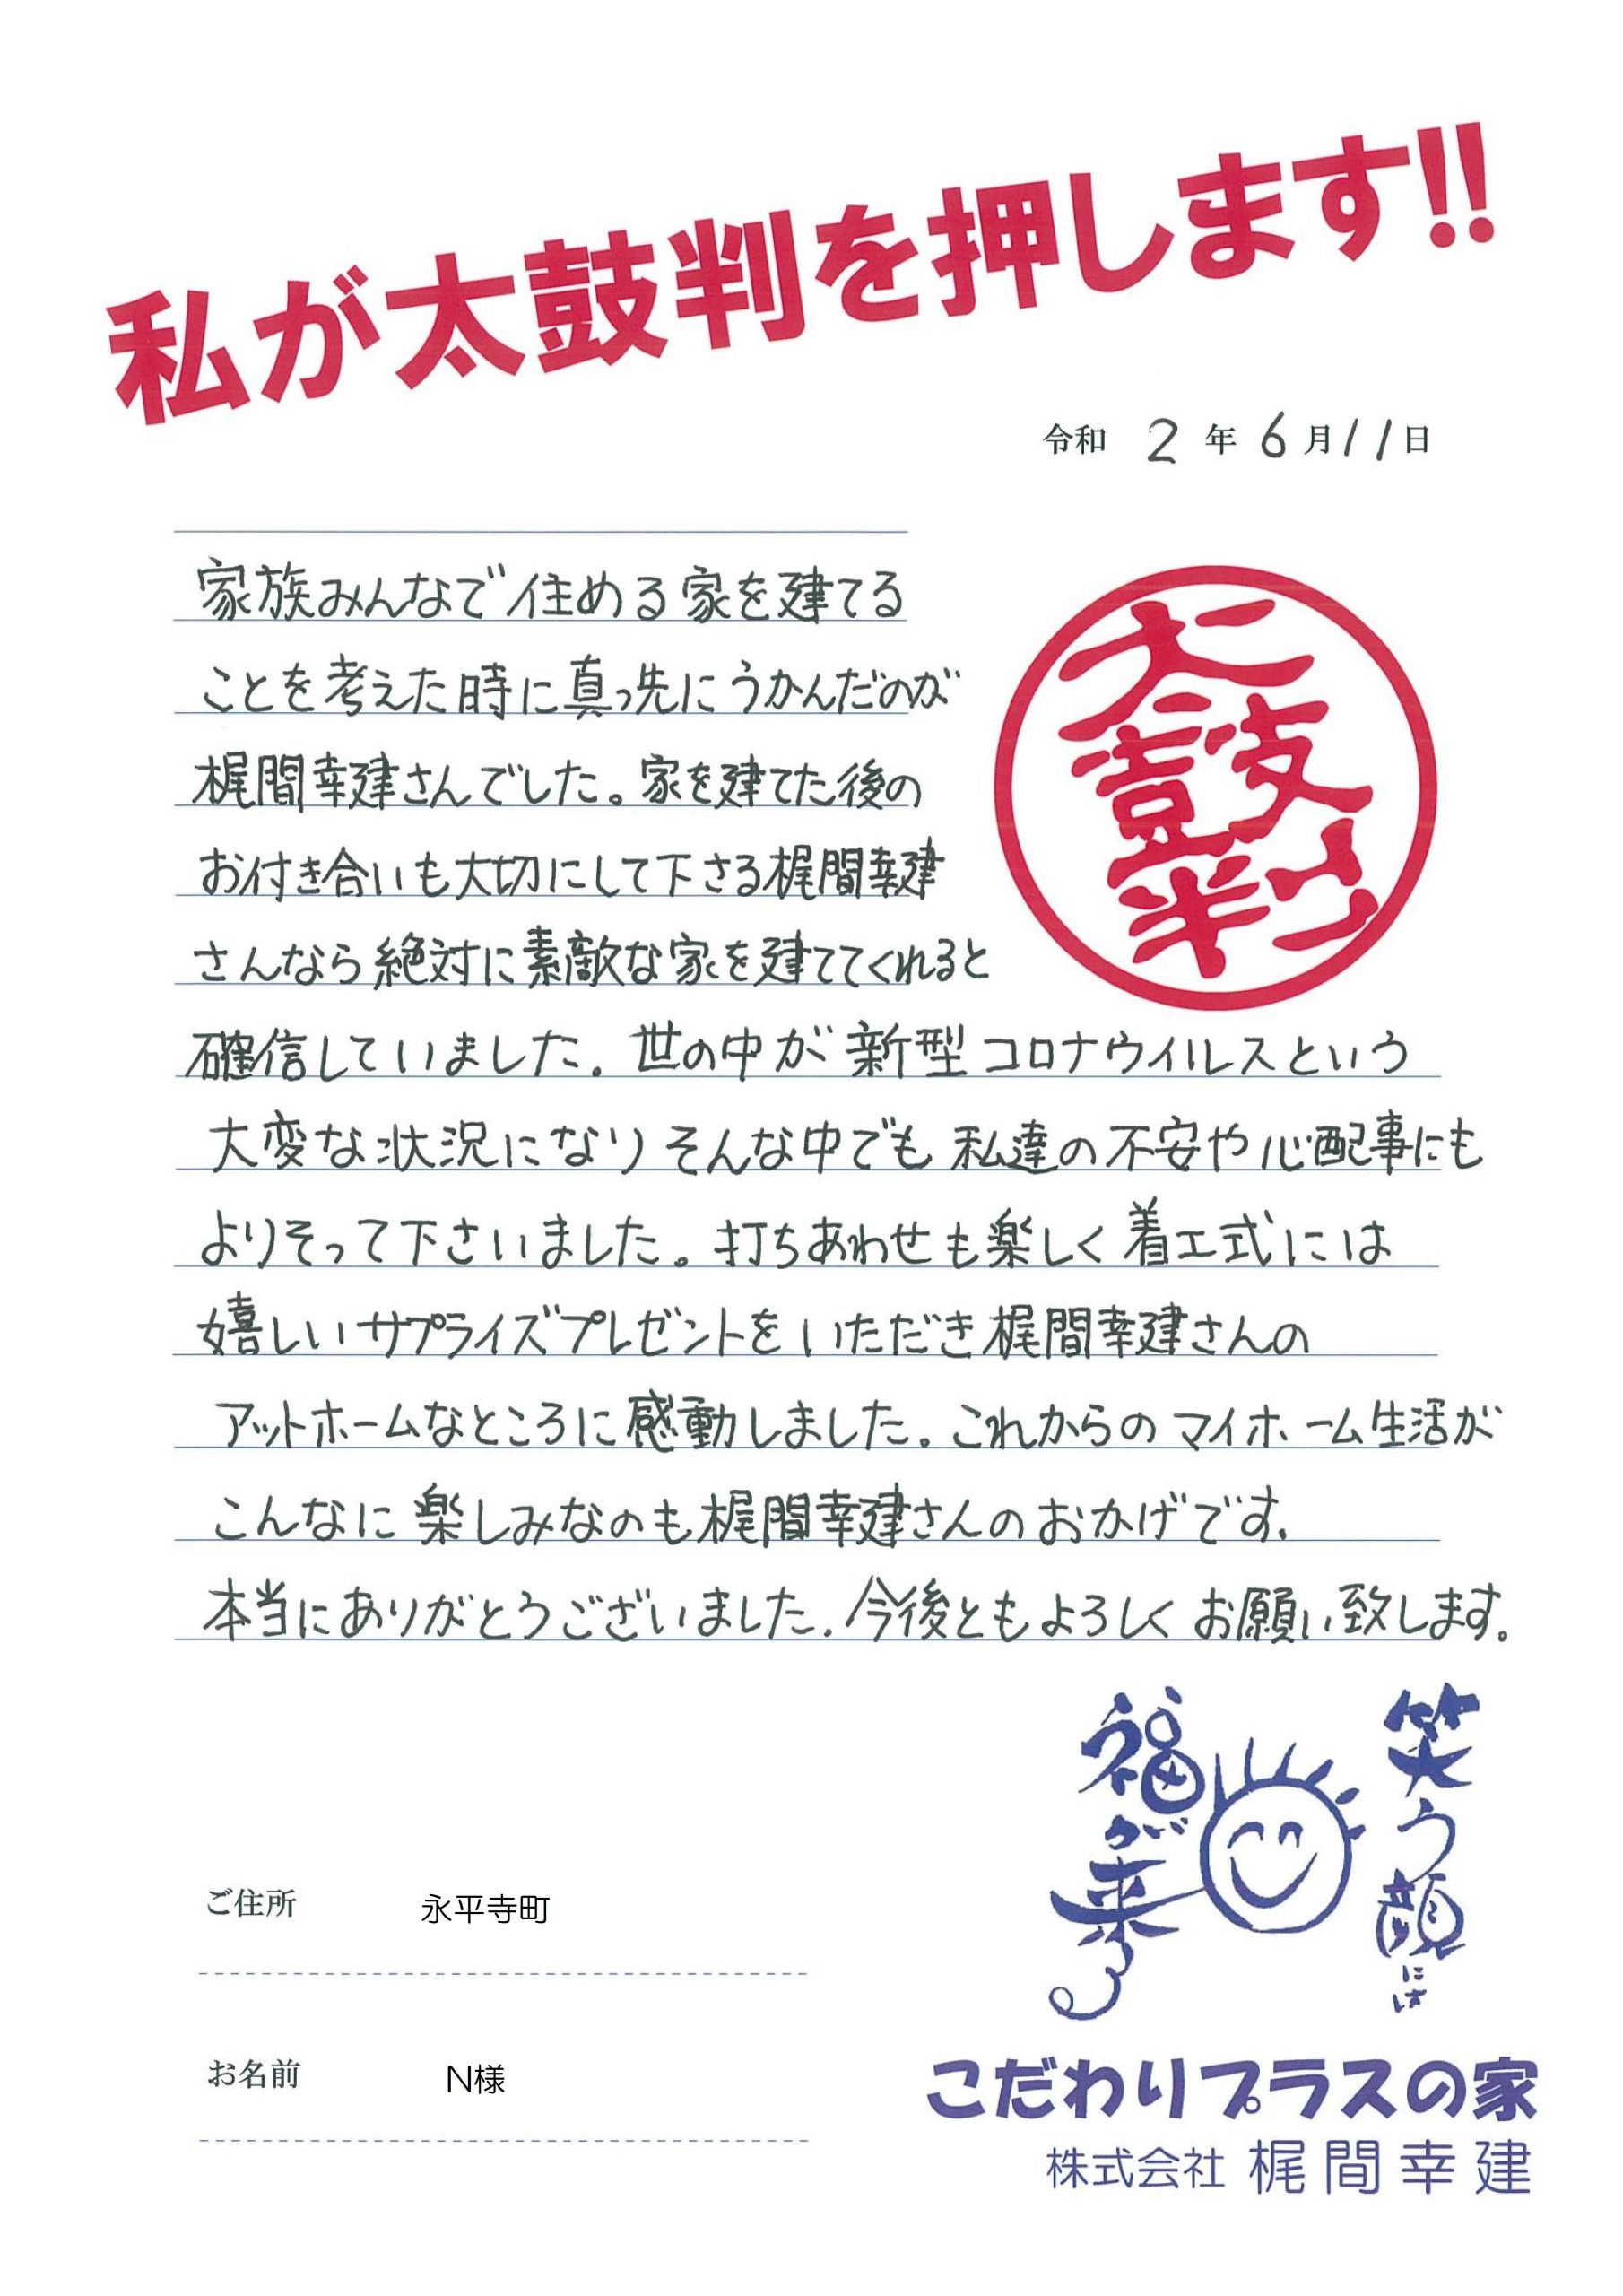 私が太鼓判を押します!!
令和 2 年 6 月 11 日
家族みんなで住める家を建てる
ことを考えた時に真っ先にうかんだのが
梶間幸建さんでした。家を建てた後の
お付き合いも大切にして下さる梶間幸建
さんなら絶対に素敵な家を建ててくれると
確信していました。世の中が新型コロナウイルスという
大変な状況になりそんな中でも私達の不安や心配事にも
よりそって下さいました。打ちあわせも楽しく着工式には
嬉しいサプライズプレゼントをいただき梶間幸建さんの
アットホームなところに感動しました。これからのマイホーム生活が
こんなに楽しみなのも梶間幸建さんのおかげです。
本当にありがとうございました。今後ともよろしくお願い致します。
太鼓判
笑う顔には
福が来る
ご住所 永平寺町
お名前 N様
こだわりプラスの家
株式会社 梶間幸建